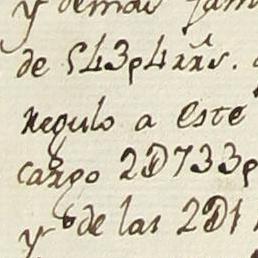 y demas
de 543p4rrs.
regulo a este
cargo 2D733p
y de las 2D1